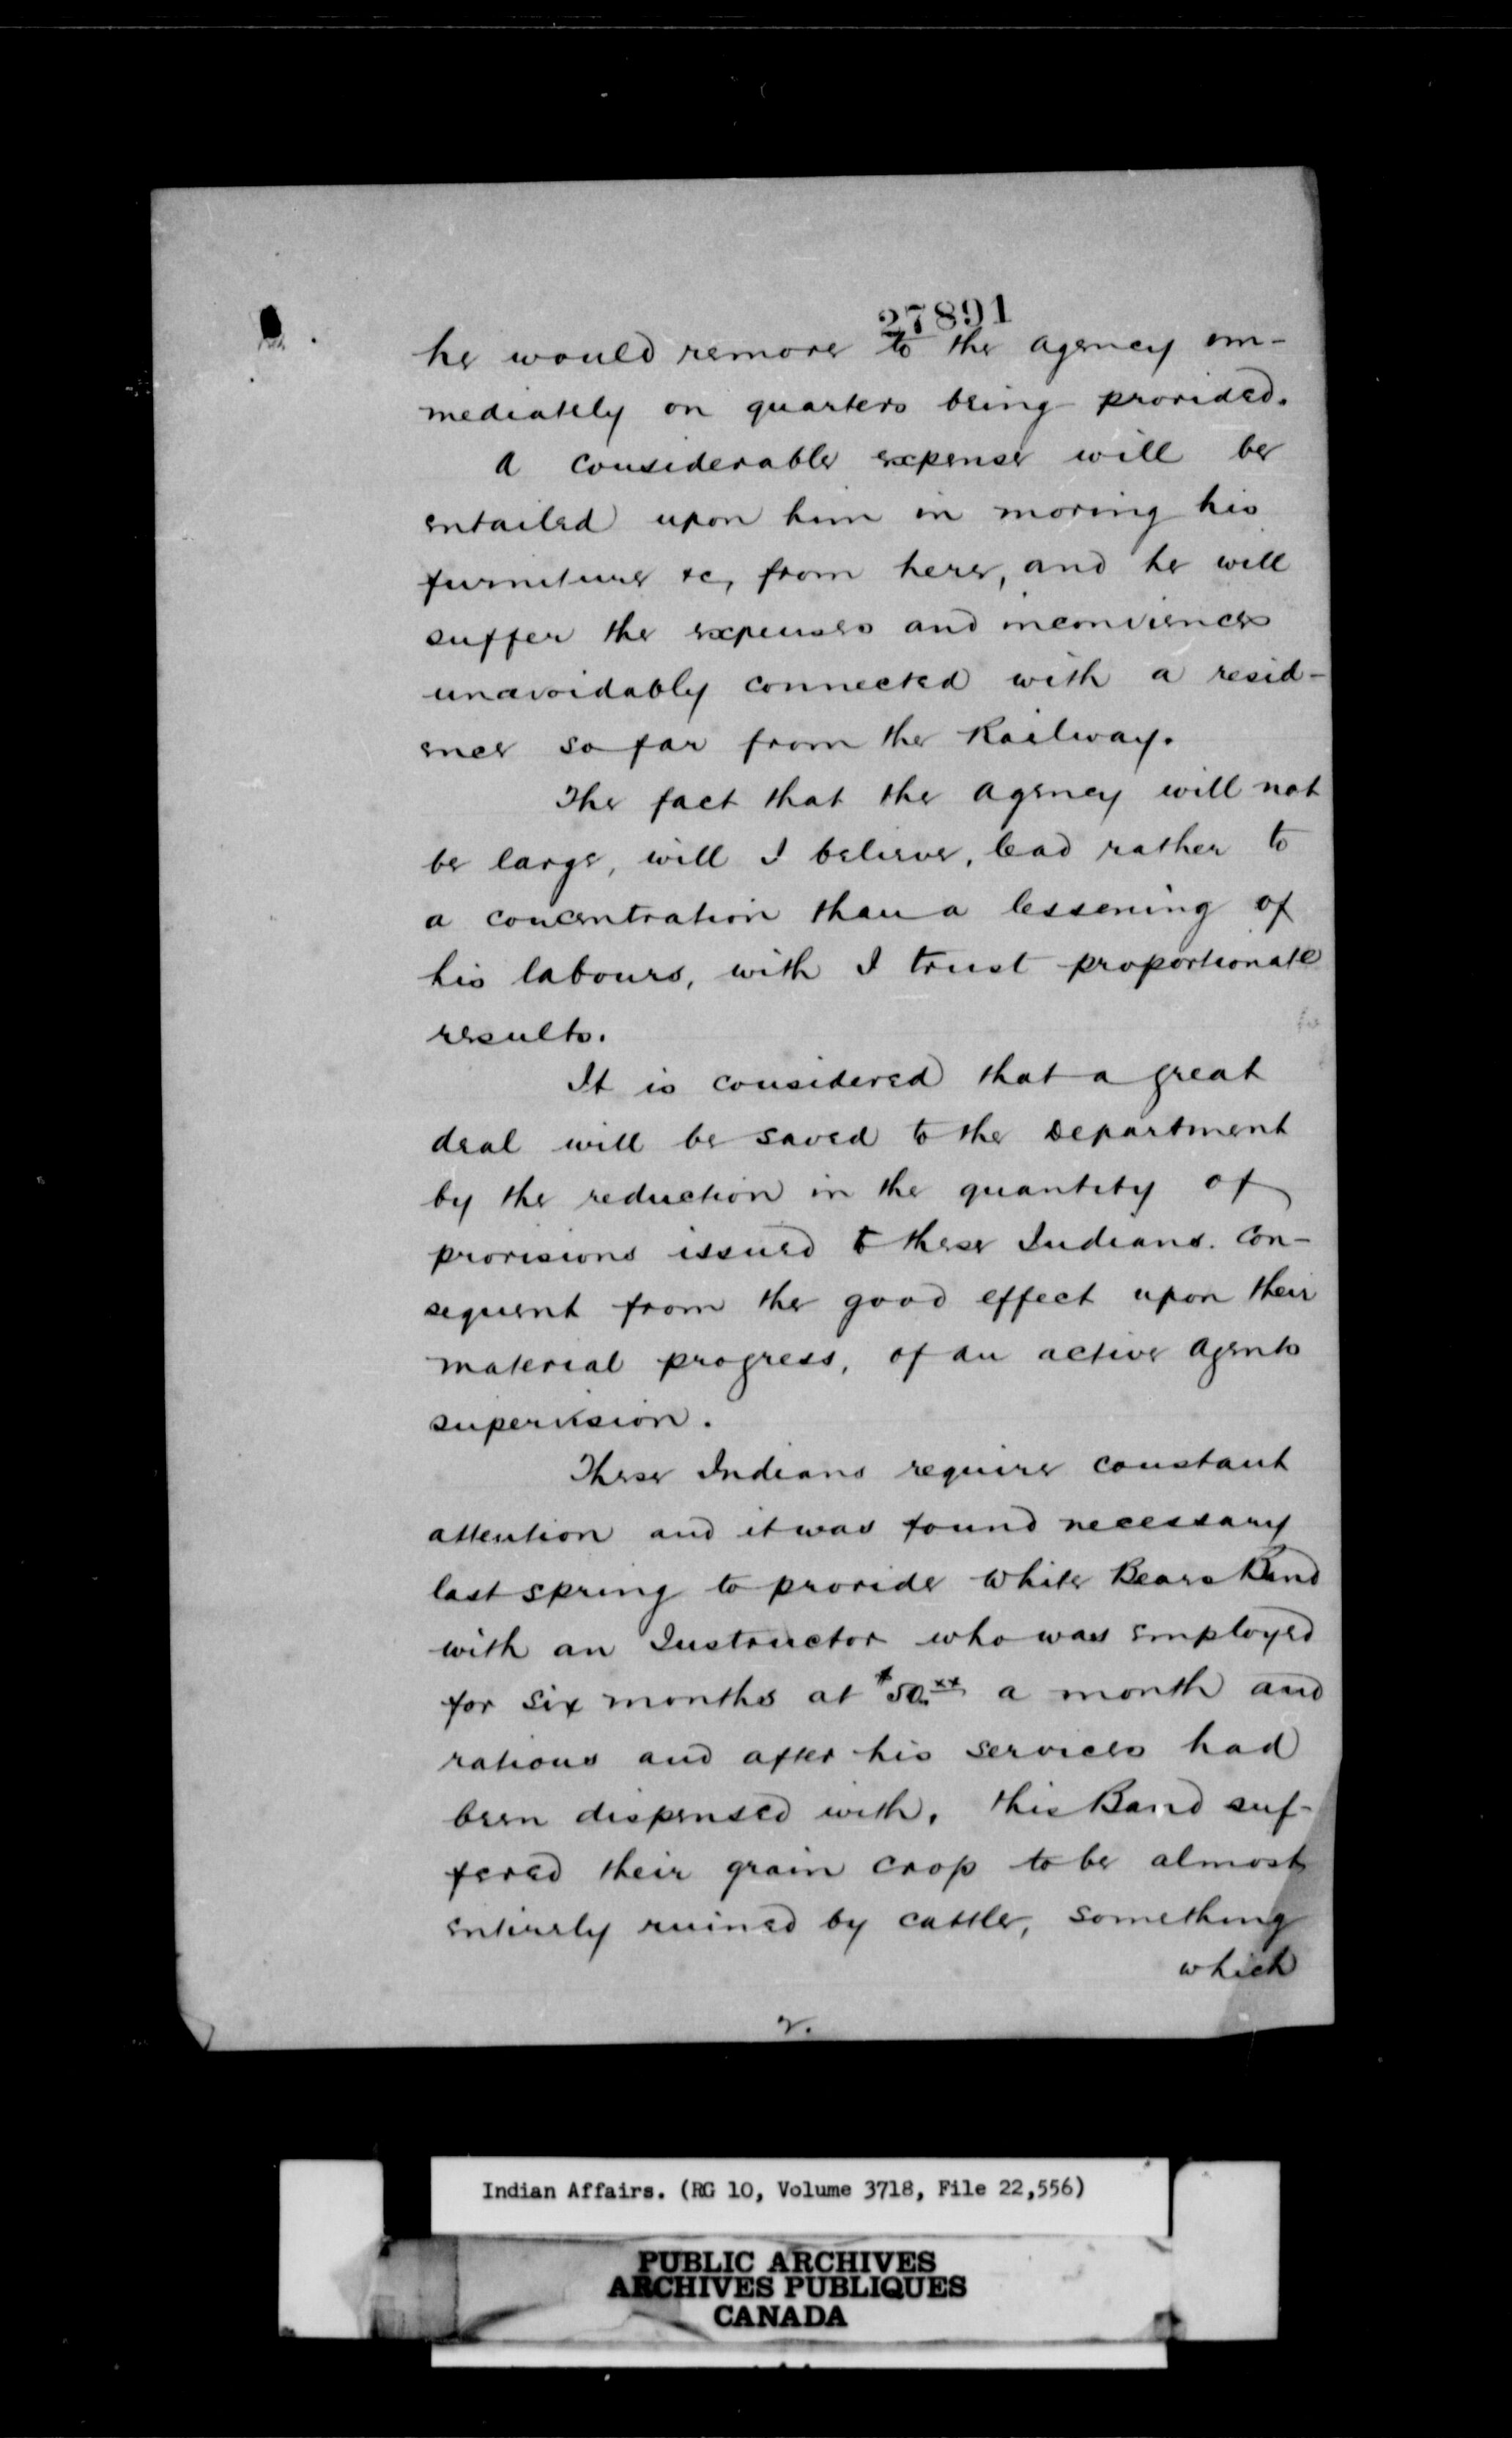 27891
he would remove to the Agency im-
mediately on quarters being provided.
A considerable expense will be
entailed upon him in moving his
furniture &c, from here, and he will
suffer the expenses and inconviences
unavoidably connected with a resid-
ence so far from the Railway.
The fact that the Agency will not
be large, will I believe, lead rather to
a concentration than a lessening of
his labours, with I trust proportionate
results.
It is considered that a great
deal will be saved to the Department
by the reduction in the quantity of
provisions issued to these Indians. Con-
sequent from the good effect upon their
material progress, of an active Agents
supervision.
These Indians require constant
attention and it was found necessary
last spring to provide White Bears Band
with an Instructor who was employed
for six months at $50.xx a month and
rations and after his services had
been dispensed with, this Band suf-
fered their grain crop to be almost
entirely ruined by cattle, something
which
2.
Indian Affairs. (RG 10, Volume 3718, File 22,556)
PUBLIC ARCHIVES
ARCHIVES PUBLIQUES
CANADA